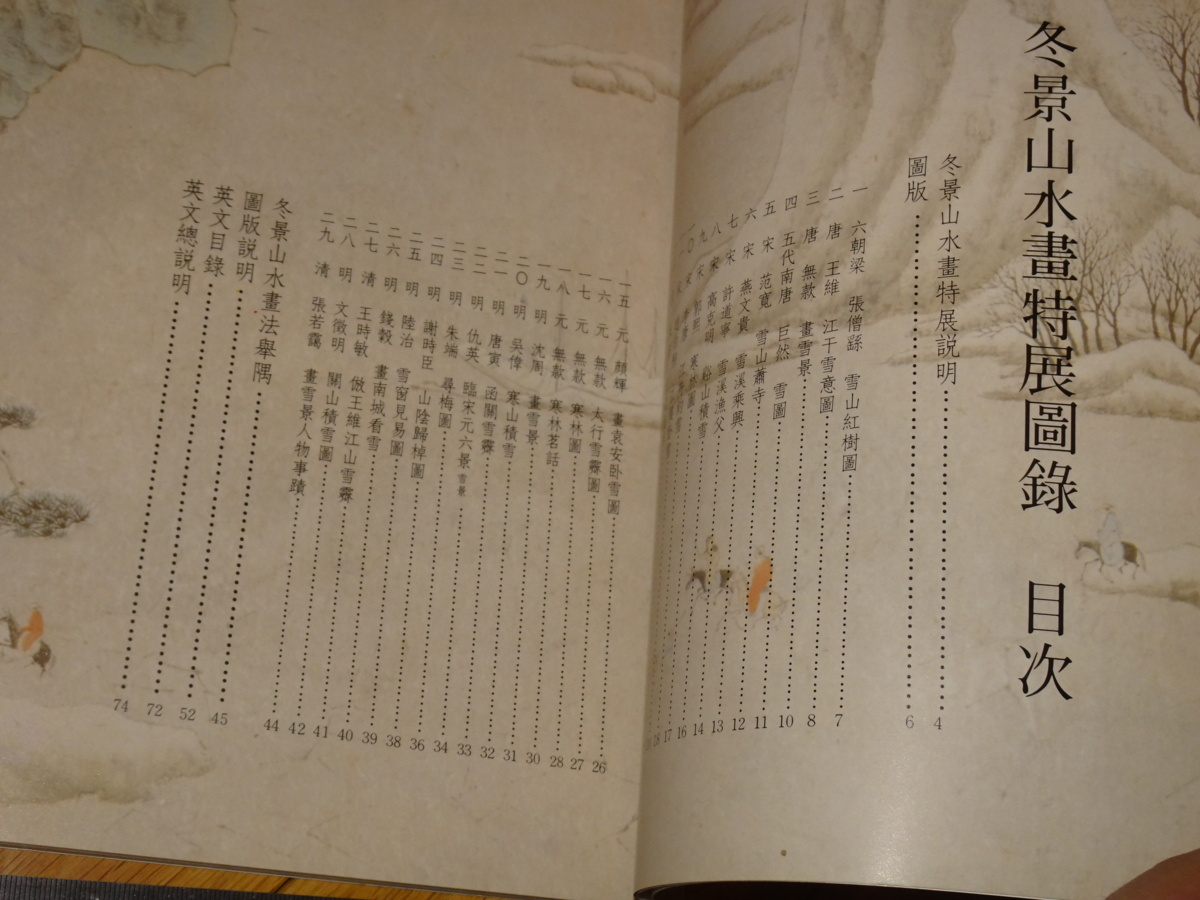 冬景山水畫特展圖錄　目次
冬景山水畫特展説明 4
圖版 6
一　六朝梁　張僧繇　雪山紅樹圖 7
二　唐　王維　江干雪意圖 8
三　唐　無款　畫雪景 10
四　五代南唐　巨然　雪圖 11
五　宋　范寬　雪山蕭寺 12
六　宋　燕文貴　雪溪乘興 13
七　宋　許道寧　雪溪漁父 14
八　宋　高克明　谿山積雪 16
九　宋　郭熙　寒林圖 17
一〇　宋 18
一五　元　顏輝　畫袁安卧雪圖 26
一六　元　無款　太行雪霽圖 27
一七　元　無款　寒林圖 28
一八　元　無款　寒林茗話 30
一九　明　沈周　畫雪景 31
二〇　明　吳偉　寒山積雪 32
二一　明　唐寅　函關雪霽 33
二二　明　仇英　臨宋元六景 雪景 34
二三　明　朱端　尋梅圖 36
二四　明　謝時臣　山陰歸棹圖 38
二五　明　陸治　雪窗見易圖 39
二六　明　錢榖　畫南城看雪 40
二七　清　王時敏　倣王維江山雪霽 41
二八　明　文徵明　關山積雪圖 42
二九　清　張若靄　畫雪景人物事蹟 44
冬景山水畫法舉隅 45
圖版説明 52
英文目錄 72
英文總説明 74